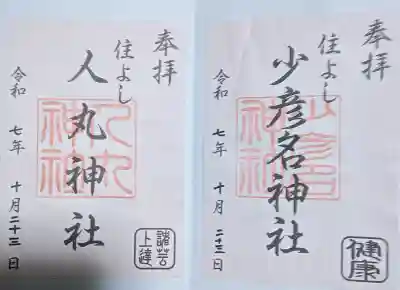 奉拝
住よし
少彦名神社
令和 七年 十月 二十三日
健康
少彦名
神社
奉拝
住よし
人丸神社
令和 七年 十月二十三日
諸芸
上達
人丸
神社